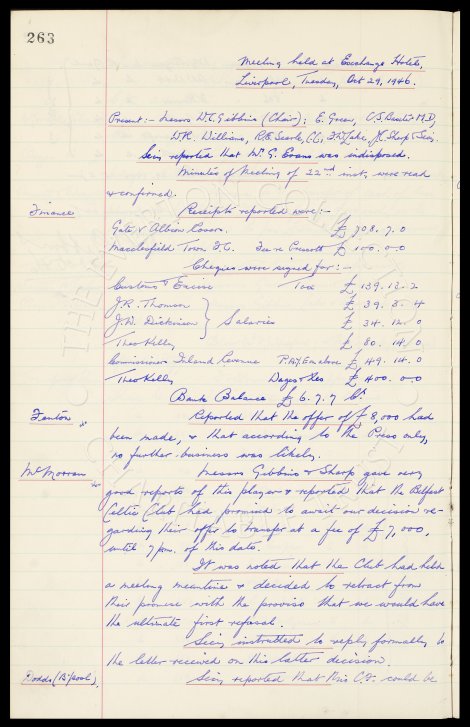 263
Meeting held at Exchange Hotel,
Liverpool, Tuesday, Oct 29, 1946.
Present:- Messrs W.C. Gibbins (Chair); E. Green, C.S. Baxter M.D,
W.R. Williams, R.E. Searle, J. Sharp & Secy.
Secy reported that Mr. G. Evans was indisposed.
Minutes of Meeting of 22nd inst, were read
& confirmed.
Finance Receipts reported were:-
Gate v Albion Covers. £ 708. 7. 0
Macclesfield Town F.C. Fee re Prescott £ 100. 0-0
Cheques were signed for:-
Customs & Excise Tax £ 139. 13. 2
J.R. Thomson } £ 39. 3. 4
J.W. Dickinson } Salaries £ 34. 12. 0
Theo Kelly £ 80. 14. 0
Commissioner Inland Revenue P.A.Y.E as above £ 49. 14. 0
Theo Kelly Wages & Exs £ 400. 0-0
Bank Balance £ 6. 7. 7
Fenton Reported that the offer of £8,000 had
been made, & that according to the Press only,
no further business was likely.
McMorran Messrs Gibbins & Sharp gave very
good reports of this player & reported that the Belfast
Celtic Club had promised to await our decision re-
garding their offer to transfer at a fee of £7,000,
until 7 p.m. of this date.
It was noted that the Club had held
a meeting meantime & decided to retract from
their promise with the proviso that we would have
the ultimate first refusal.
Secy instructed to reply formally to
the letter received on this latter decision.
Dodds (B'pool), Secy reported that this C.F. could be